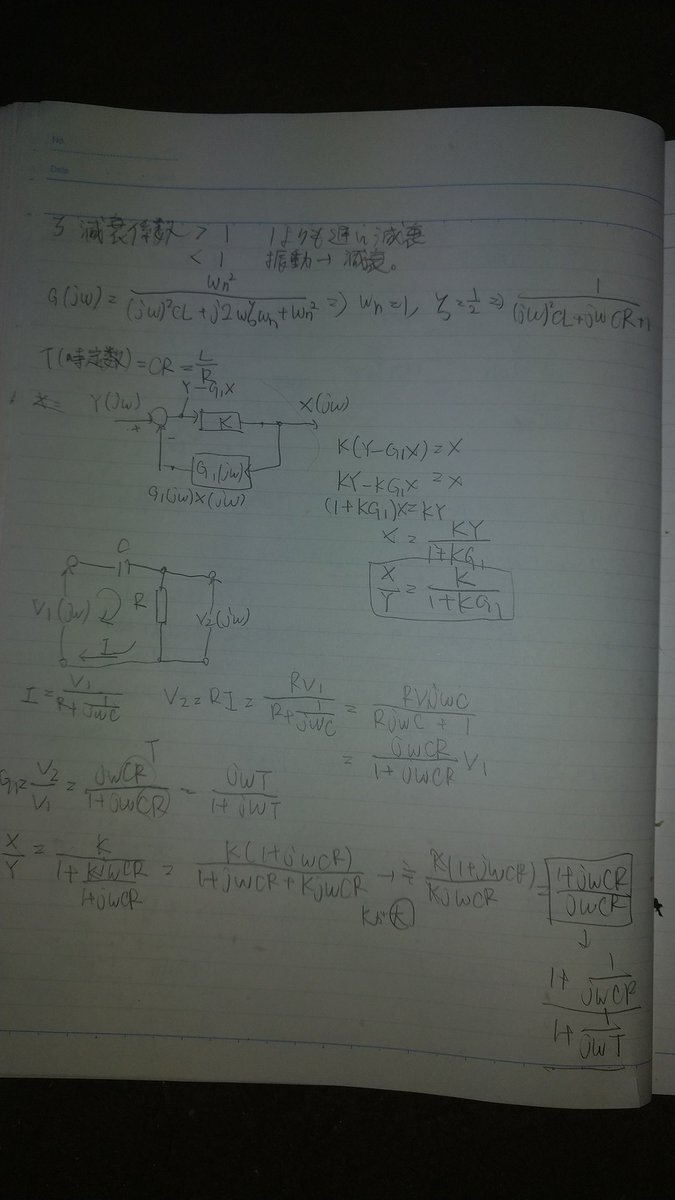 No.
Date
ζ 減衰係数 > 1 1よりも遅い減衰
< 1 振動→減衰。
G(jω) = ωn² / ((jω)²CL + j2ωζωn + ωn²) ⇒ ωn = 1, ζ = 1/2 ⇒ 1 / ((jω)²CL + jωCR + 1)
T(時定数) = CR = L/R
Y - G₁X
Y(jω) + - K X(jω)
G₁(jω)
G₁(jω)X(jω)
K(Y - G₁X) = X
KY - KG₁X = X
(1 + KG₁)X = KY
X = KY / (1 + KG₁)
X/Y = K / (1 + KG₁)
C
V₁(jω) R V₂(jω)
I
I = V₁ / (R + 1/(jωC)) V₂ = RI = RV₁ / (R + 1/(jωC)) = RV₁jωC / (RjωC + 1)
= jωCR / (1 + jωCR) V₁
T
G₁ = V₂/V₁ = jωCR / (1 + jωCR) = jωT / (1 + jωT)
X/Y = K / (1 + KjωCR / (1 + jωCR)) = K(1 + jωCR) / (1 + jωCR + KjωCR) → ≒ K(1 + jωCR) / (KjωCR) = (1 + jωCR) / (jωCR)
Kが大
↓
1 + 1/(jωCR)
1 + 1/(jωT)